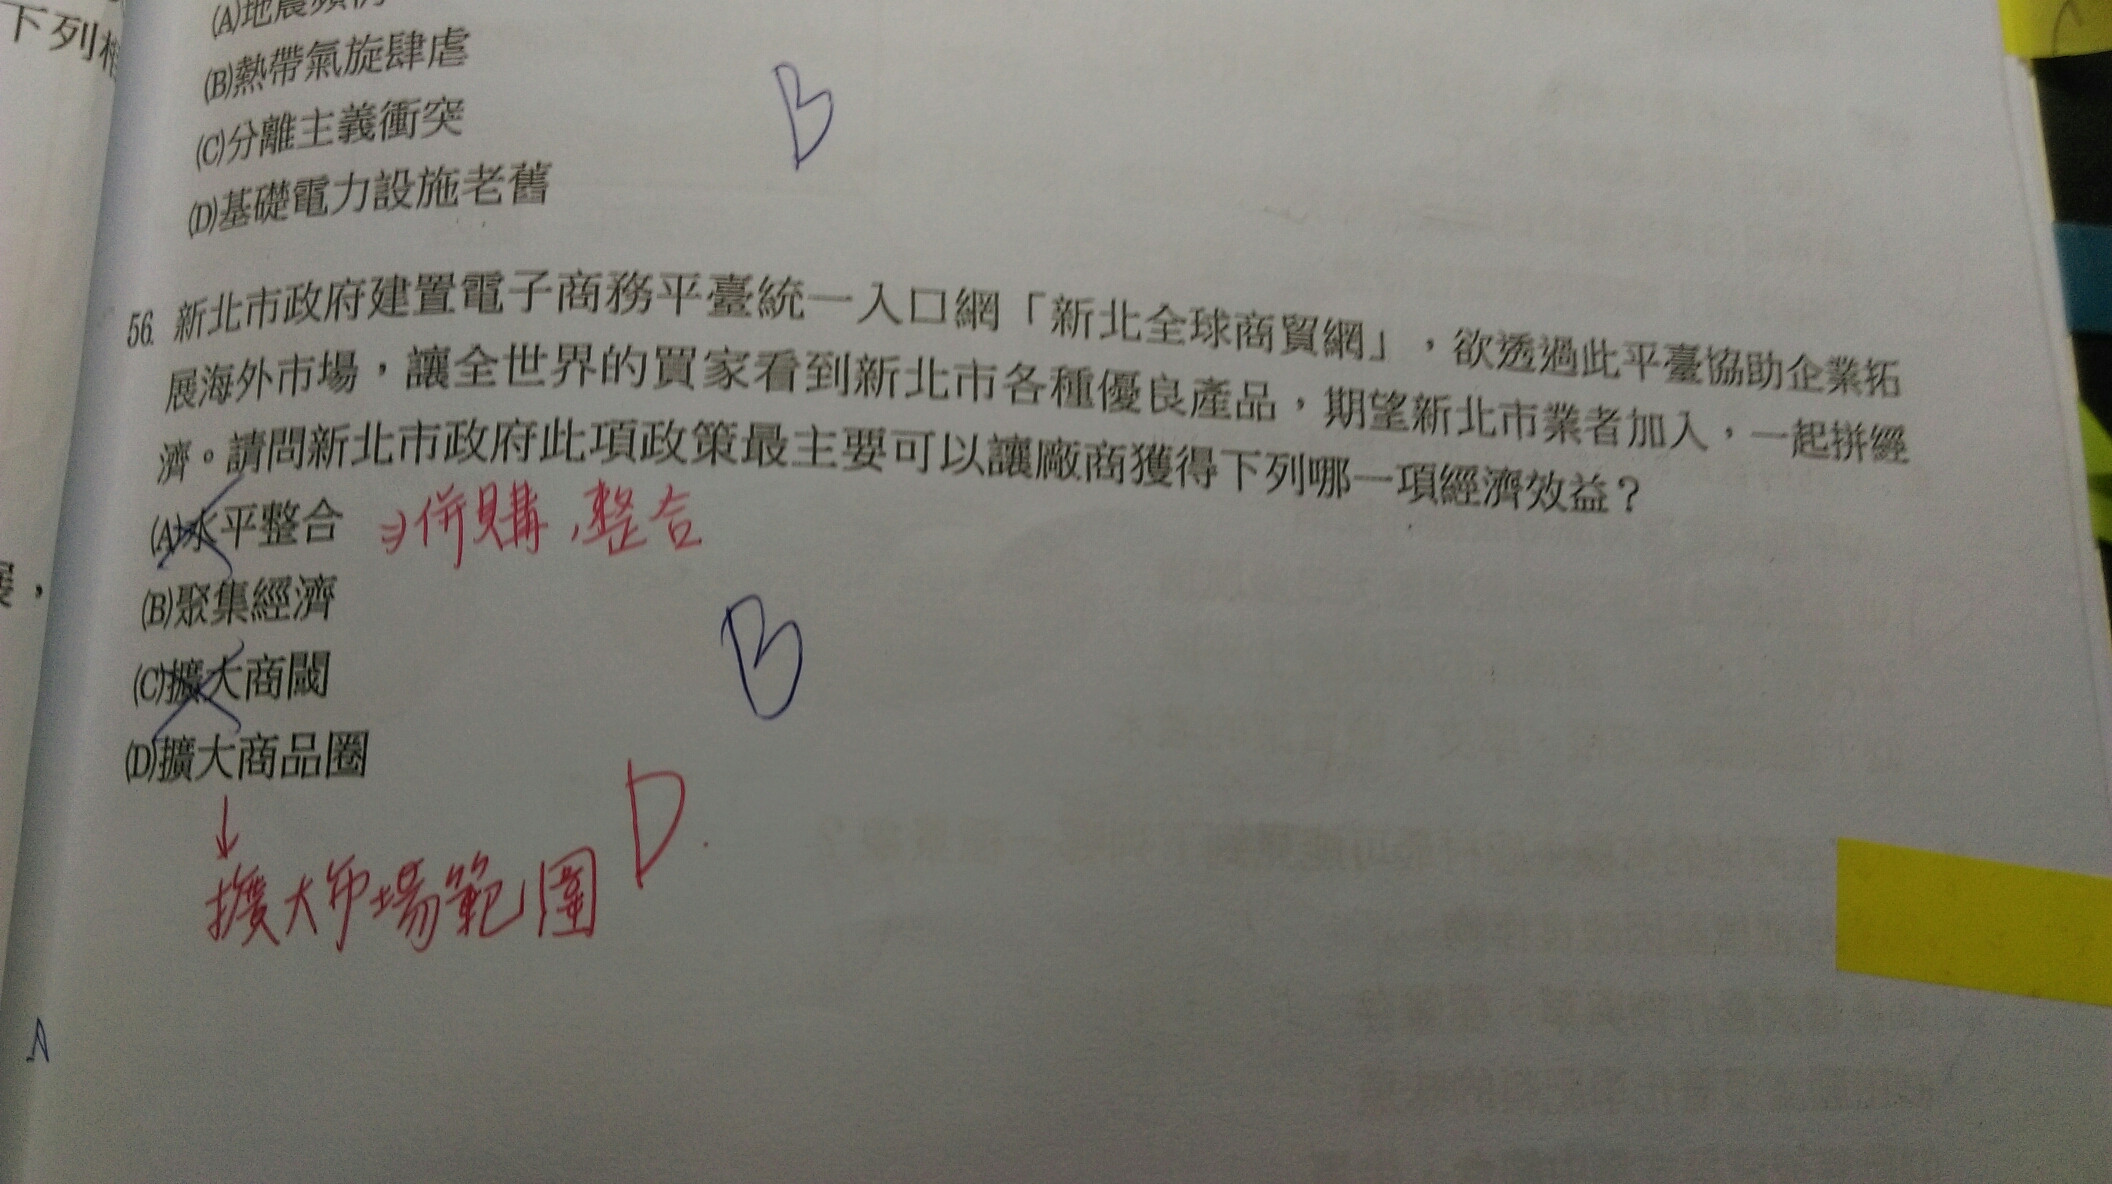 下列
(A)地震頻
(B)熱帶氣旋肆虐
(C)分離主義衝突
(D)基礎電力設施老舊
B
56. 新北市政府建置電子商務平臺統一入口網「新北全球商貿網」，欲透過此平臺協助企業拓
展海外市場，讓全世界的買家看到新北市各種優良產品，期望新北市業者加入，一起拼經
濟。請問新北市政府此項政策最主要可以讓廠商獲得下列哪一項經濟效益？
(A)水平整合 ⇒併購、整合
(B)聚集經濟
(C)擴大商閾
(D)擴大商品圈
B
↓
擴大市場範圍
D.
A